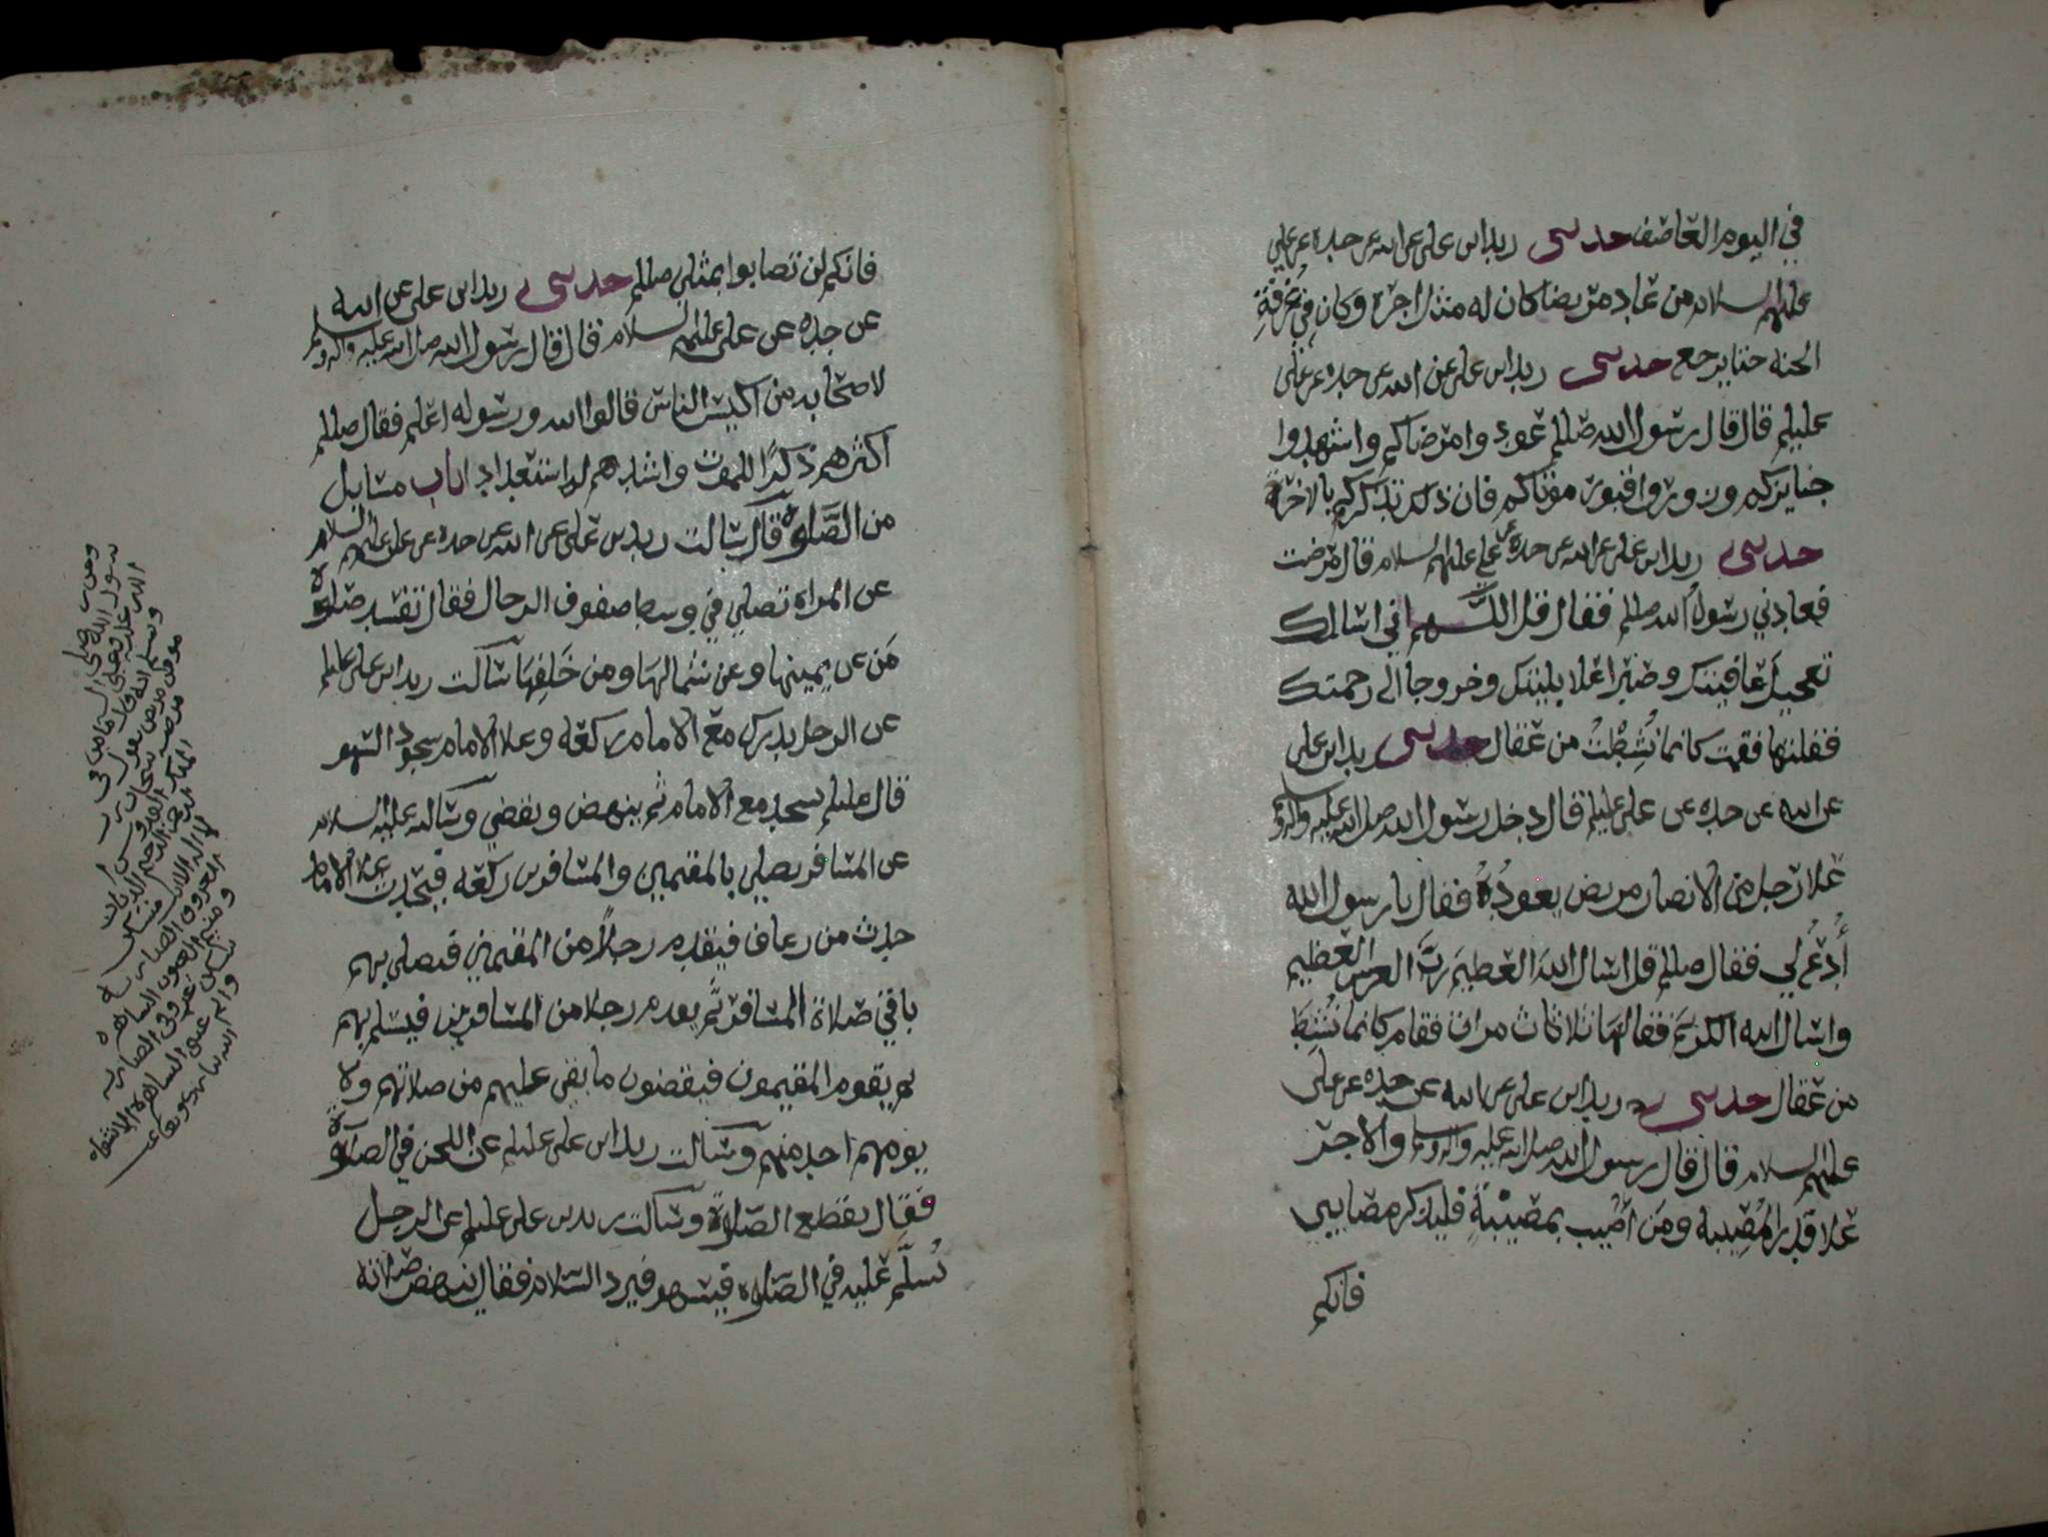 في اليوم العاصف حدثني زيد ابن علي عن ابيه عن جده عن علي
عليهم السلام من عاد مريضا كان له مثل اجره وكان في خرفة
الجنة حتا يرجع حدثني زيد ابن علي عن ابيه عن جده عن علي
عليلم قال قال رسول الله صللم عودوا مرضاكم واشهدوا
جنايزكم وزوروا قبور موتاكم فان ذلك يذكركم بالاخرة
حدثني زيد ابن علي عن ابيه عن جده عن علي عليهم السلام قال مرضت
فعادني رسول الله صللم فقال قل اللهم اني اسالك
تعجيل عافيتك وصبرا علا بليتك وخروجا الى رحمتك
فقلتها فقمت كانما نشطت من عقال حدثني زيد ابن علي
عن ابيه عن جده عن علي عليلم قال دخل رسول الله صلى الله عليه واله
علا رجل من الانصار مريض يعوده فقال يا رسول الله
أدع لي فقال صللم قل اسال الله العظيم رب العرش العظيم
واسال الله الكريم فقالها ثلاثاث مرات فقام كانما نشط
من عقال حدثني زيد ابن علي عن ابيه عن جده عن علي
عليهم السلام قال قال رسول الله صلى الله عليه واله وسلم والاجر
علا قدر المصيبه ومن اصيب بمصيبة فليذكر مصابي بي
فانكم
فانكم لن تصابوا بمثلي صللم حدثني زيد ابن علي عن ابيه
عن جده عن علي عليهم السلام قال قال رسول الله صلى الله عليه واله وسلم
لاصحابه من اكيس الناس قالوا الله ورسوله اعلم فقال صللم
اكثرهم ذكرا للموت واشدهم له استعدادا باب مسايل
من الصلوة قال سالت زيد بن علي عن ابيه عن جده عن علي عليهم السلام
عن المراه تصلي في وسط صفوف الرجال فقال تفسد صلوة
من عن يمينها وعن شمالها ومن خلفها سالت زيد ابن علي عليلم
عن الرجل يدرك مع الامام ركعه وعلا الامام سجود السهو
قال عليلم يسجد مع الامام ثم ينهض ويقضي وسالته عليه السلام
عن المسافر يصلي بالمقيمين والمسافرين ركعه فيحدث علا الامام
حدث من رعاف فيقدم رجلا من المقيمين فيصلي بهم
باقي صلاة المسافر ثم يقدم رجلا من المسافرين فيسلم بهم
ثم يقوم المقيمون فيقضون ما بقي عليهم من صلاتهم ولا
يومهم احد منهم وسالت زيد ابن علي عليلم عن اللحن في الصلوة
فقال يقطع الصلاة وسالت زيد بن علي عليلم عن الرجل
سلم عليه في الصلوة فيسهو فيرد السلام فقال صلاته
الله عليه وعلى
وسلم انه قال ما من
مريض يقول
سبحان
الملك القدوس
الرحمن الرحيم
لا اله الا انت
العروق الضاربه
ومنيم العيون الساهره
سكن عروقي الضاربه
وانم عيني الساهرة الا شفاه